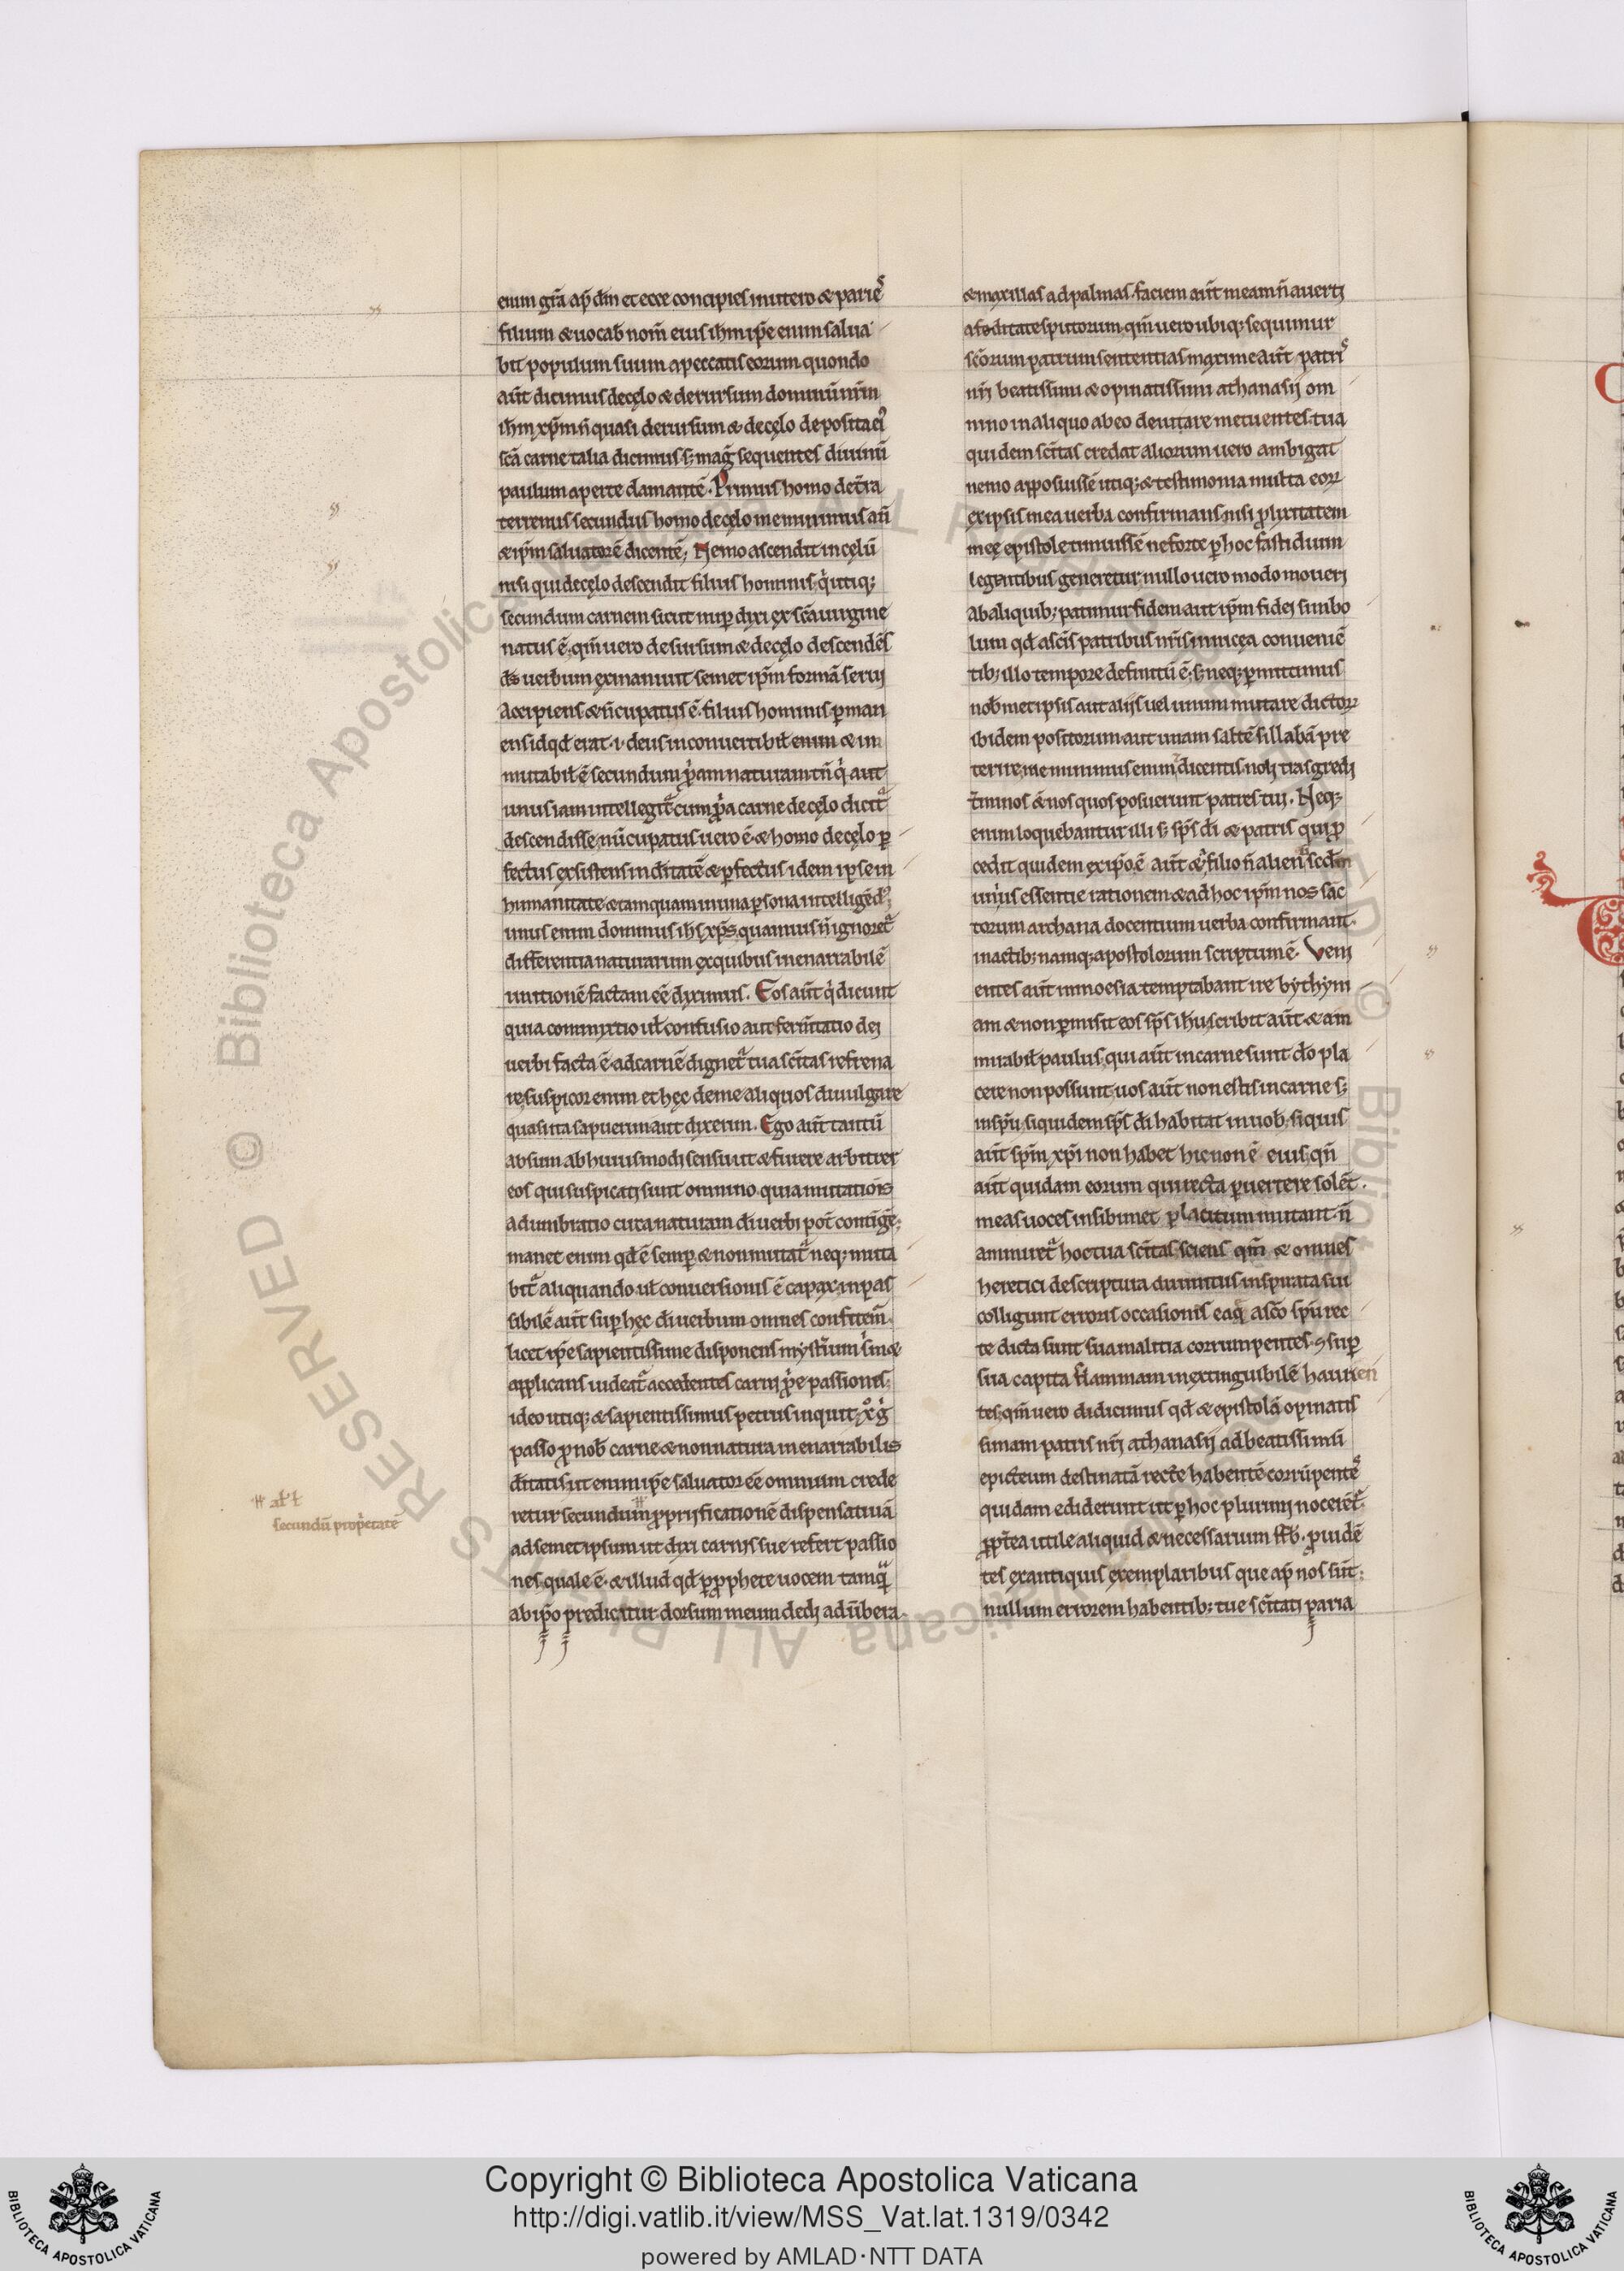 enim grã ap̃ dm̃ et ecce concipies in utero & parie᷒
filium & uocab̃ nom̃ eius ihm̃ ip̃e enim salua
bit populum suum a peccatis eorum quondo
aut̃ dicimus de cęlo & derursum dominũ nr̃m
ihm̃ xp̃m ñ quasi derursum & de cęlo deposita ei᷒
sc̃a carne talia dicimus s; mag̃ sequentes diuinũ
paulum aperte clamantẽ. Primus homo de tr̃a
terrenus secundus homo de cęlo meminimus aũ
& ip̃m saluatorẽ dicentẽ; Nemo ascendit in cęlũ
nisi qui de cęlo descendit filius hominis q̓ utiq;
secundum carnem sicut nup̱ dixi ex sc̃a uirgine
natus ẽ. qm̃ uero desursum & de cęlo descendẽs
ds̃ uerbum exinaniuit semet ip̃m formã serui
Accipiens & ñcupatus ẽ. filius hominis p̱man
ens id qd̃ erat .i. deus inconuertibil̃ enim & in
mutabil̃ ẽ secundum p̓am naturam tñ q̓ aut
unus iam intellegit̃ cum p̓a carne de cęlo dicit̃
descendisse, nũcupatus uero ẽ. & homo de cęlo p̱
fectus exsistens in dĩtatẽ & p̱fectus idem ipse in
humanitate & tamquam in una p̱sona intelligẽd᷒;
unus enim dominus ih̃s xp̃s, quamuis ñ ignoret̃
differentia naturarum ex quibus inenarrabilẽ
unitionẽ factam eẽ diximus. Eos aut̃ q̓ dicunt
quia commixtio ul̃ confusio aut fermtatio dei
uerbi facta ẽ. ad carnẽ dignet̃ tua sc̃itas refrena
re, suspicor enim et hęc de me aliquos diuulgare
quasi ita sapuerim aut dixerim. Ego aut̃ tantũ
absum ab huiusmodi sensu ut & furere arbitrer
eos qui suspicati sunt omnino quia mutationis
adumbratio circa naturam di uerbi pot̃ contige;
manet enim qd̃ ẽ semp̱ & non mutat̃ neq; muta
bit̃ aliquando ul̃ conuersionis ẽ capax, inpas
sibilẽ aut̃ sup̱ hęc di uerbum omnes confitem̃.
licet ip̃e sapientissime disponens myst̃ium sim&
applicans uideat̃ accedentes carni p̓e passionis;
ideo utiq; & sapientissimus petrus inquit, x᷒ g̃
passo p̱ nob̃ carne & non natura inenarrabilis
dĩtatis, ut enim ip̃e saluator eẽ omnium crede
retur secundum p̱prii ficationẽ dispensatiuã
ad semet ipsum ut dixi carnis sue refert passio
nes quale ẽ. & illud qd̃ p̱ p̱phete uocem tamq̃
ab ip̃o predicitur dorsum meum dedi ad ũbera
al̃
secundũ prop̓etatẽ
& maxillas ad palmas, faciem aut̃ meam ñ auerti
a feditate sputorum. qm̃ uero ubiq; sequimur
sc̃orum patrum sententias maxime aut̃ patri᷒
nr̃i beatissimi & opinatissimi athanasij om
nino in aliquo ab eo deuitare metuentes. tua
quidem sc̃itas credat aliorum uero ambigat
nemo apposuissẽ utiq; & testimonia multa eorꝝ
ex ipsis mea uerba confirmans nisi p̱lixitatem
meę epistole timuissẽ ne forte p̱ hoc fastidium
legentibus generetur, nullo uero modo moueri
ab aliquib; patimur fidem aut ip̃m fidei simbo
lum qd̃ a sc̃is patribus nr̃is in nicea conueniẽ
tib; illo tempore definitũ ẽ, s; neq; p̱mittimus
nob̃ met ipsis aut alijs uel unum mutare dictorꝝ
ibidem positorum aut unam saltẽ sillabã pre
terire, meminimus enim dicentis, noli trãsgredi
t̃minos &nos quos posuerunt patres tui. Neq;
enim loquebantur illi s; sp̃s di & patris qui p̱
cedit quidem ex ip̃o ẽ aut̃ & filio ñ alienus scd̃m
unius essentie rationem & ad hoc ip̃m nos sãc
torum archana docentium uerba confirmant.
in actib; namq; apostolorum scriptum ẽ. Veni
entes aut̃ in moesia temptabant ire bythym
am & non p̱misit eos sp̃s ihu, scribit aut̃ & am
mirabil̃ paulus, qui aut̃ in carne sunt do pla
cere non possunt, uos aut̃ non estis in carne s;
in sp̃u, siquidem sp̃s di habitat in uob̃, siquis
aut̃ sp̃m xp̃i non habet hic non ẽ eius, qñ
aut̃ quidam eorum qui recta p̱uertere solẽt.
meas uoces in sibimet placitum mutant. ñ
ammiret̃ hoc tua sc̃itas, sciens qm̃ & omnes
heretici de scriptura diuinitus inspirata sui
colligunt erroris occasionis ea q̃ a sc̃o sp̃u rec
te dicta sunt sua malitia corrumpentes. & sup̱
sua capita flammam inextinguibilẽ haurien
tes, qm̃ uero didicimus qd̃ & epistolã opinatis
simam patris nr̃i athanasij ad beatissimũ
epicteum destinatã recte habentẽ corrũpente᷒
quidam ediderunt ut p̱ hoc plurimi noceret̃.
p̱pt̃ea utile aliquid & necessarium ff̃b. p̱uidẽ
tes ex antiquis exemplaribus que ap̃ nos sũt;
nullum errorem habentib; tue sc̃itati paria
© Biblioteca Apostolica Vaticana ALL RIGHTS RESERVED
Copyright © Biblioteca Apostolica Vaticana
http://digi.vatlib.it/view/MSS_Vat.lat.1319/0342
powered by AMLAD·NTT DATA
BIBLIOTECA APOSTOLICA VATICANA
BIBLIOTECA APOSTOLICA VATICANA